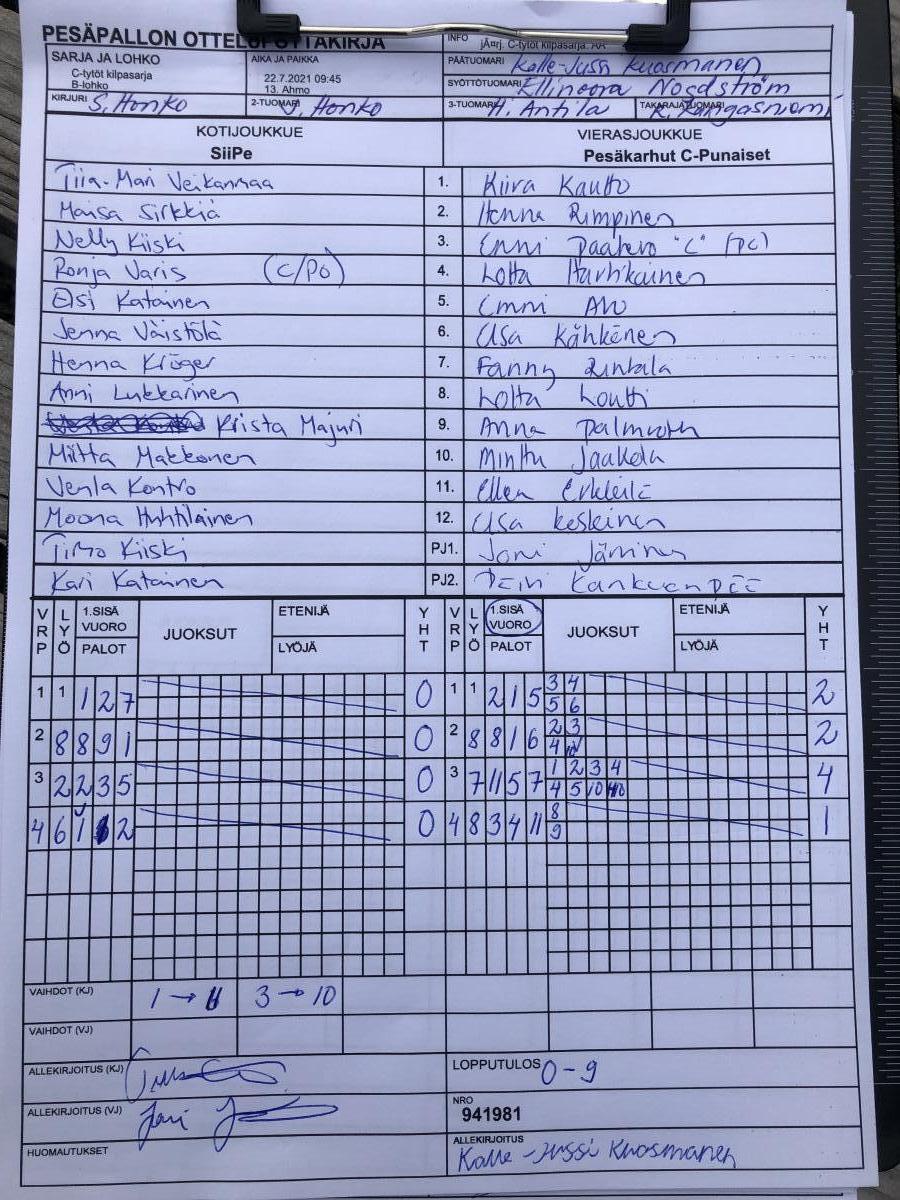 PESÄPALLON OTTELUPÖYTÄKIRJA
INFO järj. C-tytöt kilpasarja. AA
SARJA JA LOHKO
C-tytöt kilpasarja
B-lohko
AIKA JA PAIKKA
22.7.2021 09:45
13. Ahmo
PÄÄTUOMARI Kalle-Jussi Kuosmanen
SYÖTTÖTUOMARI Ellinoora Nordström
KIRJURI S. Honko
2-TUOMARI J. Honko
3-TUOMARI H. Antila
TAKARAJATUOMARI K. Kangasniemi
KOTIJOUKKUE
SiiPe
VIERASJOUKKUE
Pesäkarhut C-Punaiset
Tiia-Mari Veikanmaa 1. Kiira Kautto
Maisa Sirkkiä 2. Henna Rimpinen
Nelly Kiiski 3. Enni Paatero "C" (PC)
Ronja Varis (C/PO) 4. Lotta Harhkainen
Elsi Katainen 5. Emni Alo
Jenna Väistölä 6. Elsa Kähkönen
Henna Kröger 7. Fanny Rintala
Anni Lukkarinen 8. Lotta Loutti
Krista Majuri 9. Anna Palmroth
Miitta Makkonen 10. Minttu Jaakola
Venla Kontro 11. Ellen Erkkilä
Moona Huhtilainen 12. Elsa Keskinen
Timo Kiiski PJ1. Joni Jäminen
Kari Katainen PJ2. Päivi Kankaanpää
VRP LYÖ 1.SISÄ VUORO PALOT JUOKSUT ETENIJÄ LYÖJÄ YHT VRP LYÖ 1.SISÄ VUORO PALOT JUOKSUT ETENIJÄ LYÖJÄ YHT
1 1 1 2 7 0 1 1 2 1 5 3 4 2
5 6
2 8 8 9 1 0 2 8 8 1 6 2 3 2
4
3 2 2 3 5 0 3 7 11 5 7 1 2 3 4 4
4 5 10
4 6 1 2 0 4 8 3 4 11 8 1
9
VAIHDOT (KJ) 1 → 11 3 → 10
VAIHDOT (VJ)
ALLEKIRJOITUS (KJ)
LOPPUTULOS 0 - 9
ALLEKIRJOITUS (VJ) Jari
NRO
941981
HUOMAUTUKSET
ALLEKIRJOITUS
Kalle-Jussi Kuosmanen